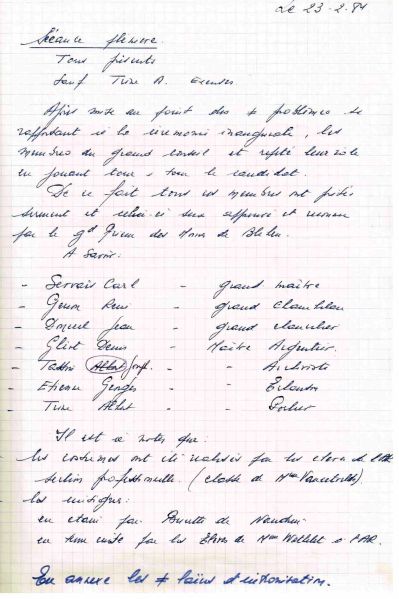 Le 23-2-84
Séance plénière
Tous présents
Sauf Tixe A. excusés
Après mise au point des ≠ problèmes se
rapportant à la cérémonie inaugurale, les
membres du grand conseil ont répété leur rôle
en jouant tour à tour le candidat.
De ce fait tous ces membres ont prêté
serment et celui-ci sera approuvé et reconnu
par le gd Prieur des
A Savoir.
- Servais Carl - grand maître
- René - grand Chambellan
- Jean - grand chancelier
- Denis - Maître Argentier.
- Albert Josep. - " Archiviste
- Etienne Georges - " Echanson
- Tixe Albert - "
Il est à noter que:
les costumes ont été réalisés par les élèves de l'AR
section professionnelle. (classe de Mme)
les insignes:
en étain par de
en terre cuite par les Elèves de Mme à l'AR.
En annexe les ≠ laïus d'intronisation.